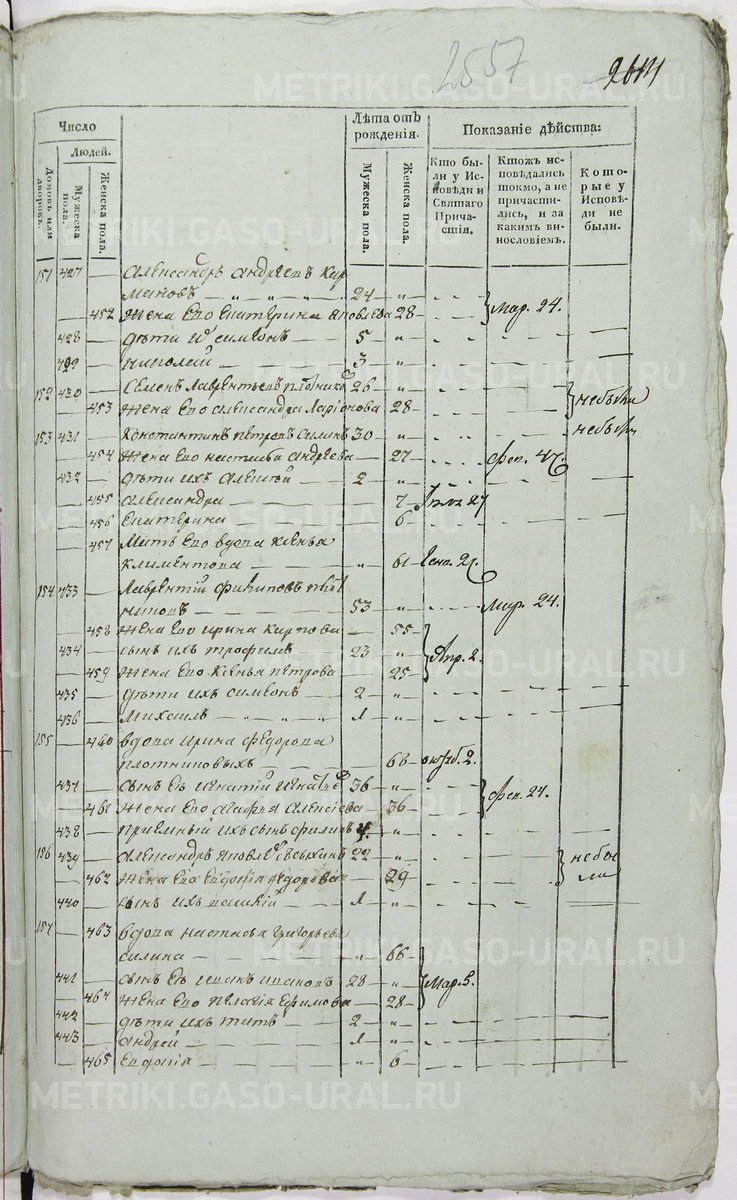 2557
2614
Число
Людей.
Домовъ или дворовъ.
Мужеска пола.
Женска пола.
Лѣта отъ рожденія.
Мужеска пола.
Женска пола.
Показаніе дѣйства:
Кто были у Исповѣди и Святаго Причастія.
Ктожъ исповѣдались токмо, а не причастились, и за какимъ винословіемъ.
Которые у Исповѣди не были.
151 427 — Александръ Андреевъ Кар
мановъ — 24 — „
— 452 Жена его Екатерина Яковлева „ 28 Мар. 24.
428 — дѣти ихъ Симеонъ — 5 — „
429 — Николай — 3 — „
152 430 — Семенъ Лаврентьевъ Плотников 26 — „
— 453 Жена его Александра Ларіонова 28 небыли
153 431 — Константинъ Петровъ Силинъ 30 — „ небылъ
— 454 Жена его Настасья Андреева — 27 Фев. 27.
432 — дѣти ихъ Алексѣй — 2 — „
— 455 Александра — 7
— 456 Екатерина — 6
— 457 Мать его вдова Ксенья
Климентова — „ 61
154 433 — Лаврентій Филиповъ Плот
никовъ — 53 — „ Мар. 24.
— 458 Жена его Ирина Карпова — 55
434 — сынъ ихъ Трофимъ 23 — „ Апр. 2.
— 459 Жена его Ксенья Петрова 25
435 — дѣти ихъ Симеонъ — 2 — „
436 — Михаилъ — 1 — „
155 — 460 вдова Ирина Федорова
Плотниковыхъ — 68 октяб. 2.
437 — сынъ еѣ Игнатій Игнатьев 36 — „
— 461 Жена его Агафья Алексіева — 36 Фев. 24.
438 — приемный ихъ сынъ Филипъ 4 — „
156 439 — Александръ Яковлев 22 — „
— 462 Жена его Евдокія Федорова — 29 небы
ли
440 — сынъ ихъ — 1 — „
157 — 463 вдова Настасья Григорьева
Силина — „ 66
441 — сынъ еѣ Иванъ Ивановъ 28 — „ Мар. 5.
— 464 Жена его Пелагія Ефимова — 28
442 — дѣти ихъ Титъ — 2 — „
443 — Андрей — 1 — „
— 465 Евдокія — „ 6
METRIKI.GASO-URAL.RU